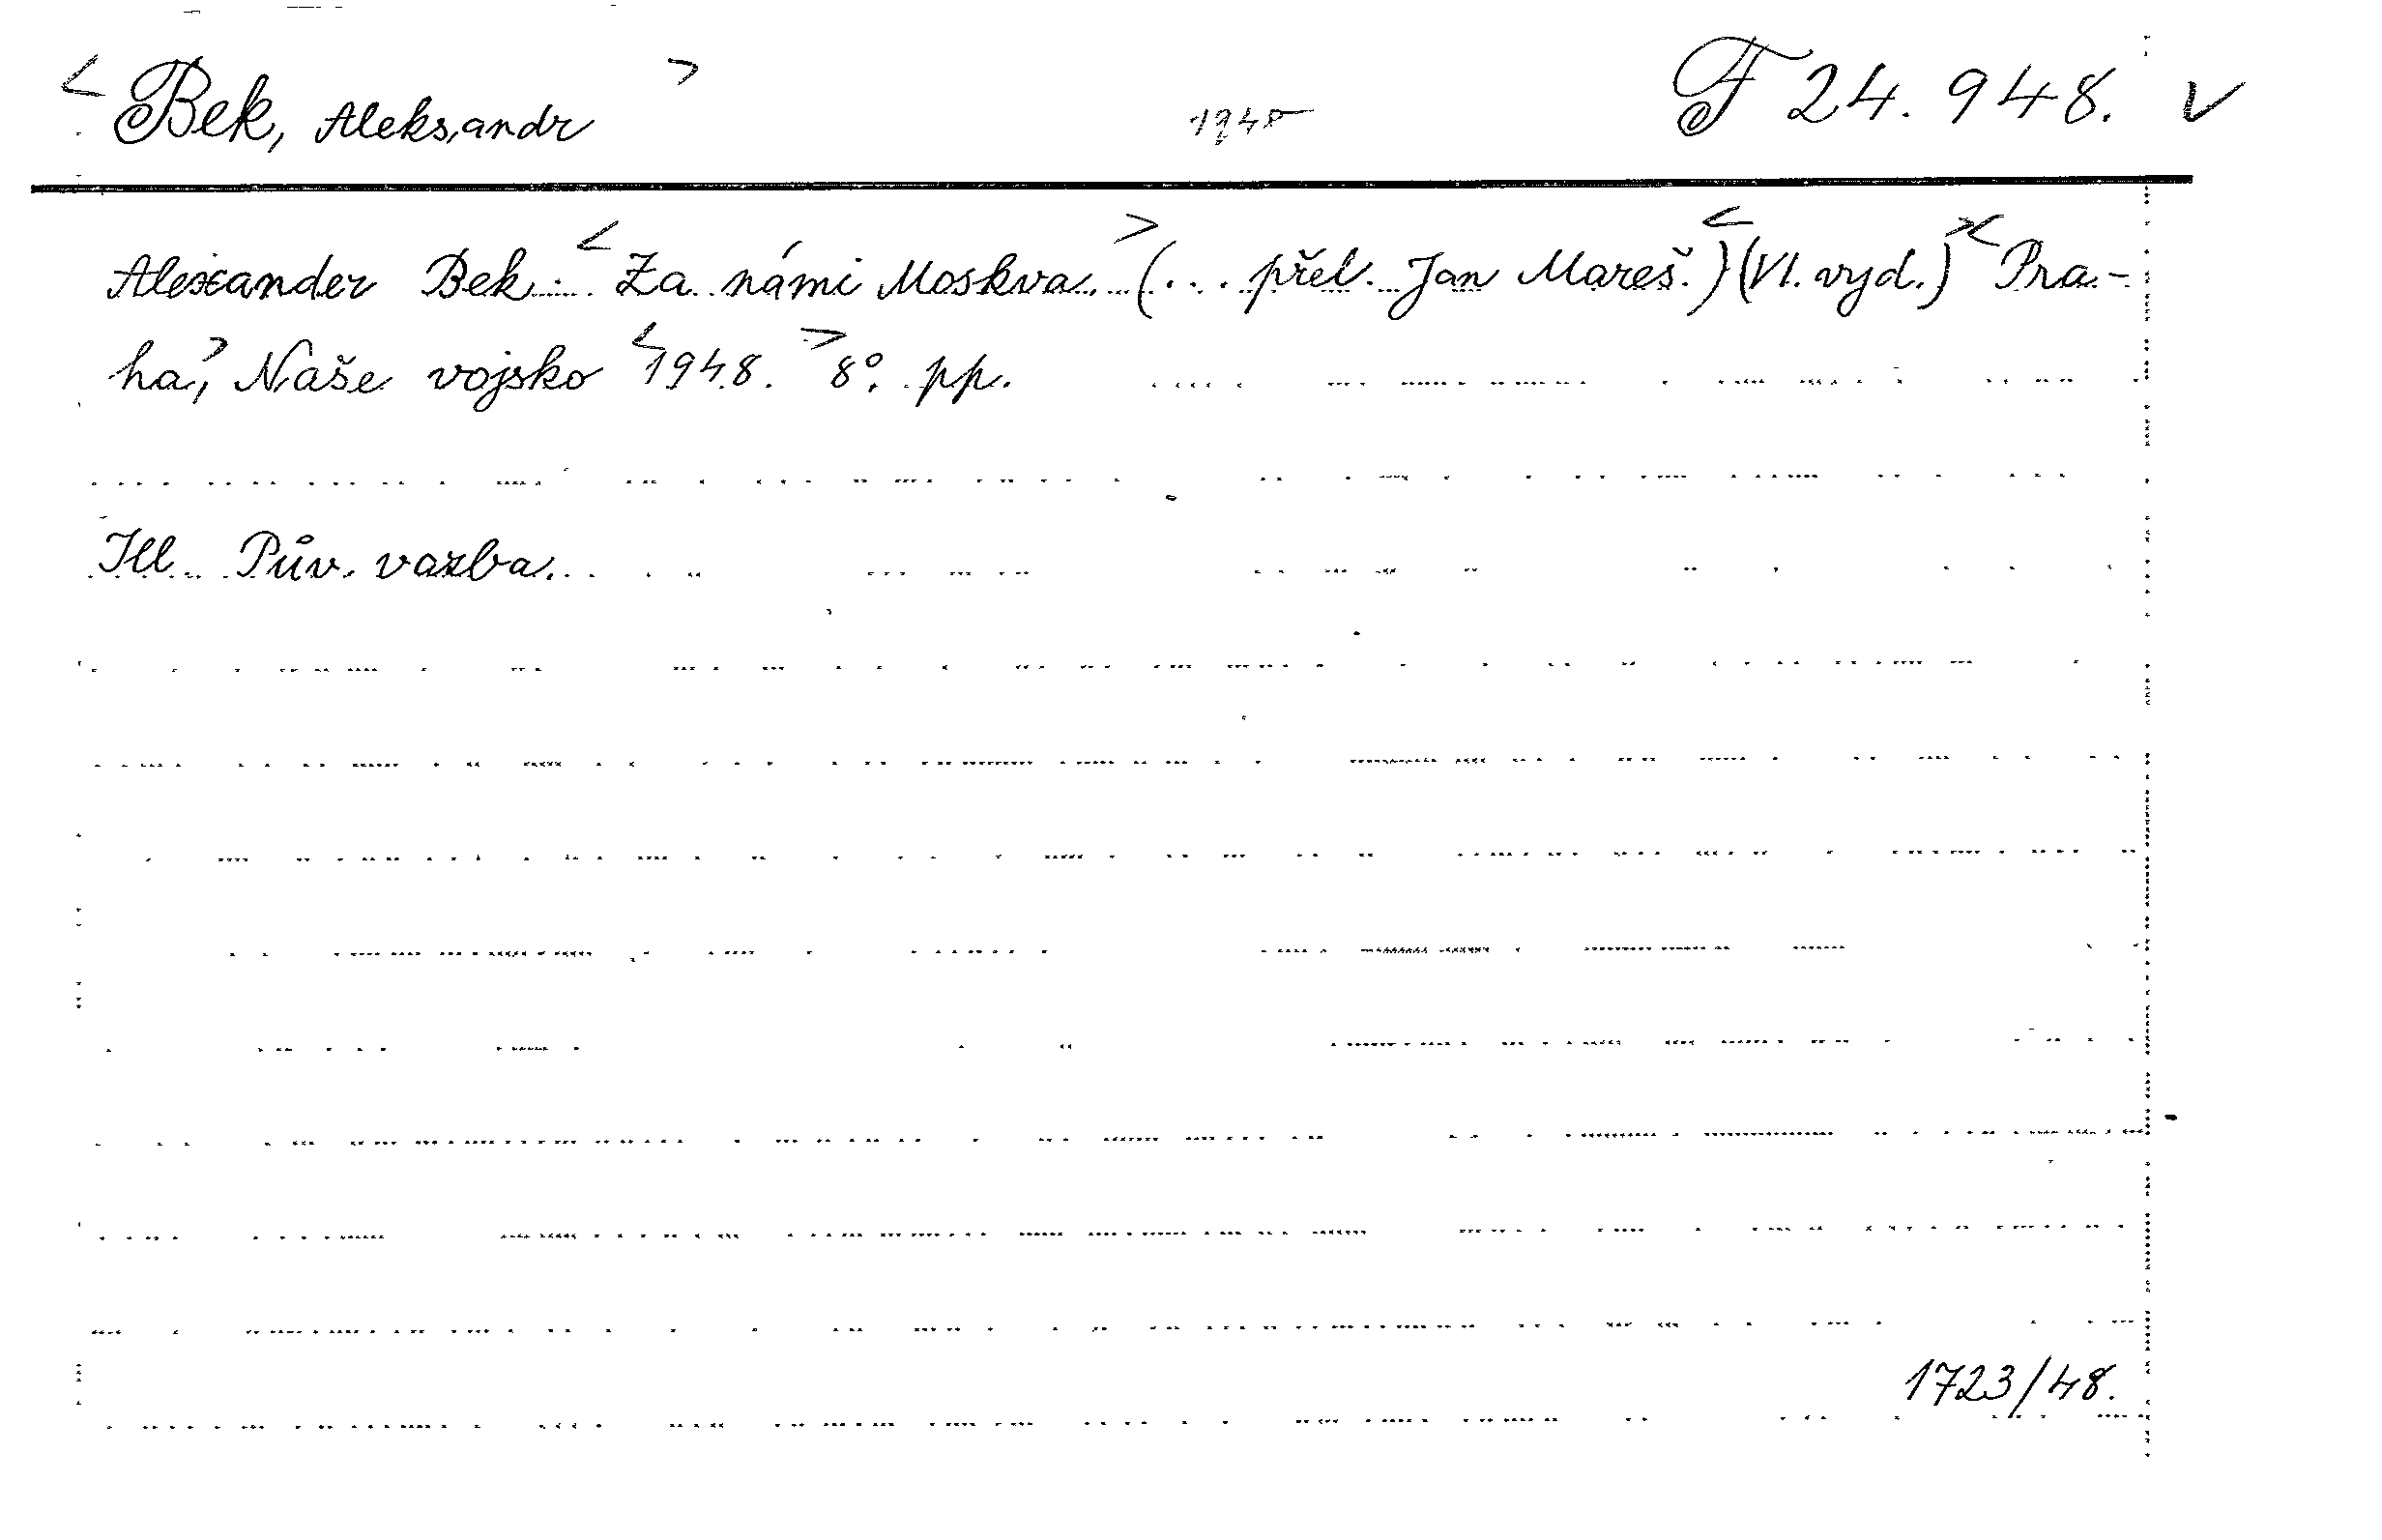 < Bek, Aleksandr > 1948 F 24.948. V
Alexander Bek: < Za námi Moskva. > (... přel. Jan Mareš.) < (VI. vyd.) > < Pra-
ha, > Naše vojsko < 1948. > 8°. pp.
Ill. Pův. vazba.
1723/48.